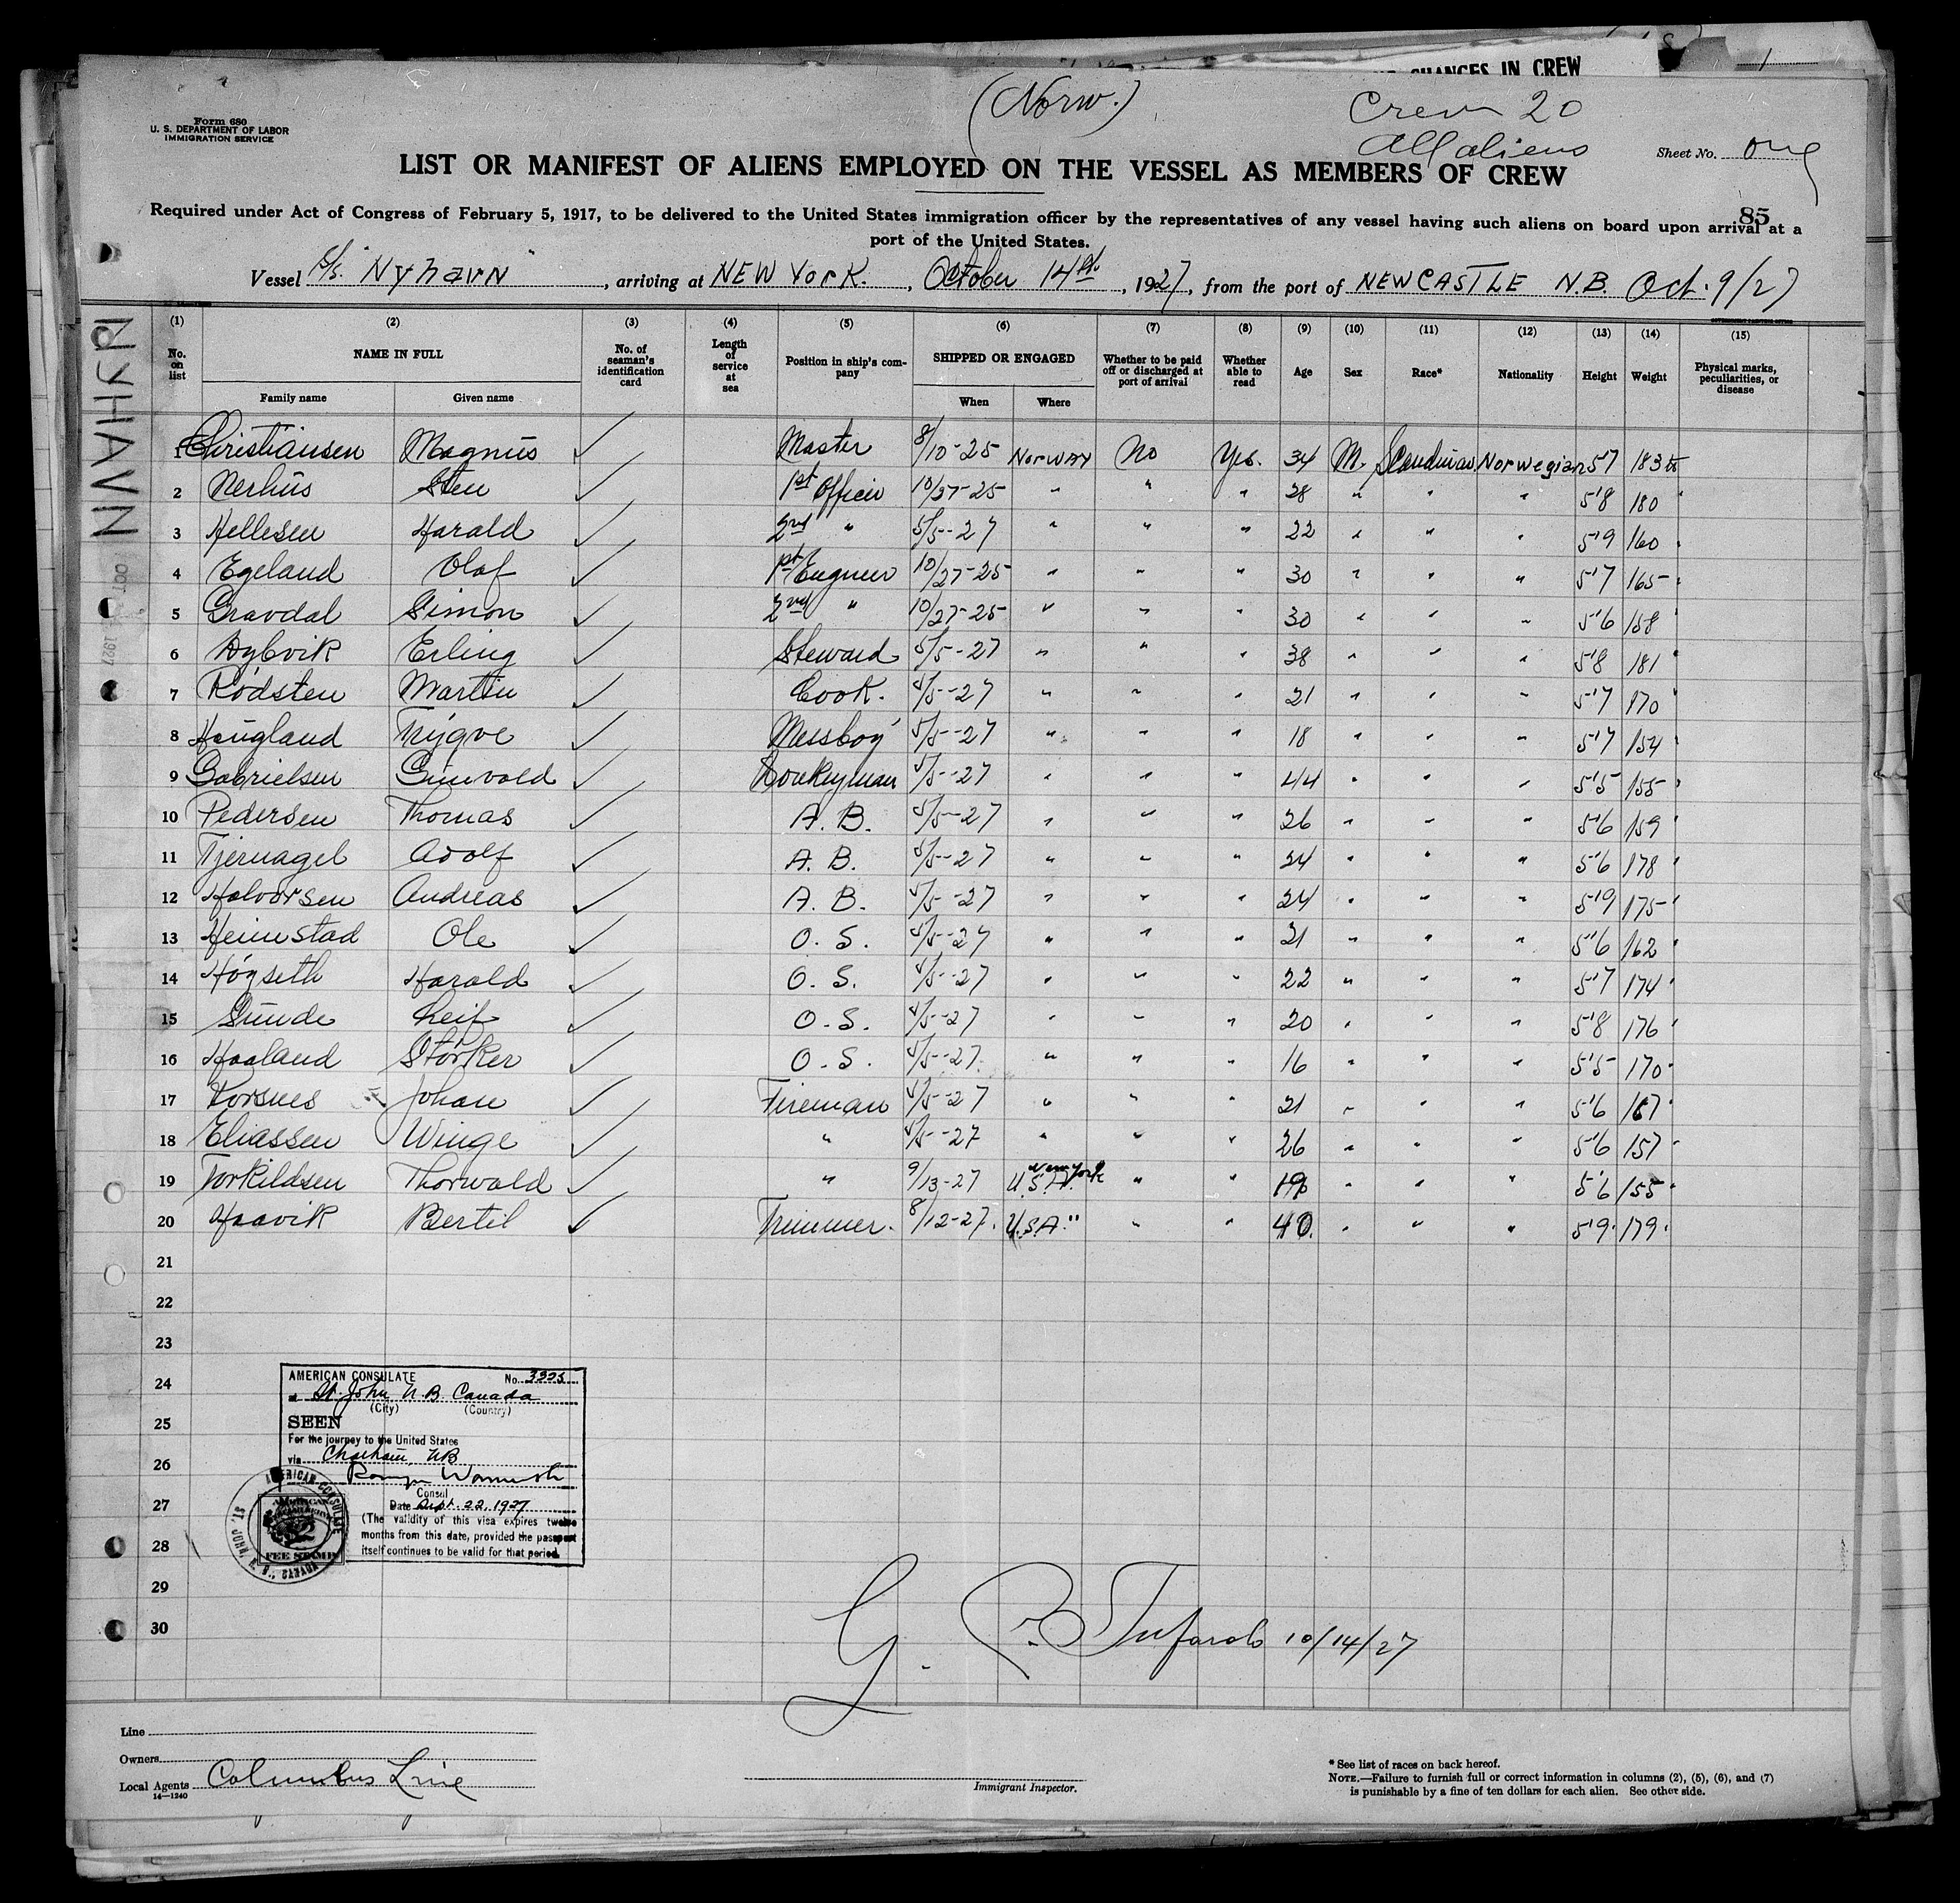 CHANGES IN CREW
1
(Norw.)
Crew 20
All aliens
Form 680
U. S. DEPARTMENT OF LABOR
IMMIGRATION SERVICE
Sheet No. one
LIST OR MANIFEST OF ALIENS EMPLOYED ON THE VESSEL AS MEMBERS OF CREW
85
Required under Act of Congress of February 5, 1917, to be delivered to the United States immigration officer by the representatives of any vessel having such aliens on board upon arrival at a
port of the United States.
Vessel S/S. "Nyhavn", arriving at NEW YORK., October 14th, 1927, from the port of NEWCASTLE N.B. Oct. 9/27
NYHAVN
OCT 1927
(1) (2) (3) (4) (5) (6) (7) (8) (9) (10) (11) (12) (13) (14) (15)
No. on list NAME IN FULL No. of seaman's identification card Length of service at sea Position in ship's company SHIPPED OR ENGAGED Whether to be paid off or discharged at port of arrival Whether able to read Age Sex Race* Nationality Height Weight Physical marks, peculiarities, or disease
Family name Given name When Where
1 Christiansen Magnus ✓ Master 8/10-25 Norway No Yes. 34 M. Scandinav. Norwegian 5'7 183 lb
2 Nerhus Sten ✓ 1st Officer 10/27-25 " " " 28 " " " 5'8 180 "
3 Hellesen Harald ✓ 2nd " 5/5-27 " " " 22 " " " 5'9 160 "
4 Egeland Olaf ✓ 1st Engineer 10/27-25 " " " 30 " " " 5'7 165 "
5 Gravdal Simon ✓ 2nd " 10/27-25 " " " 30 " " " 5'6 158 "
6 Dybvik Erling ✓ Steward 5/5-27 " " " 38 " " " 5'8 181 "
7 Rödsten Martin ✓ Cook. 5/5-27 " " " 21 " " " 5'7 170 "
8 Haugland Trygve ✓ Messboy 5/5-27 " " " 18 " " " 5'7 154 "
9 Gabrielsen Gunvald ✓ Donkeyman 5/5-27 " " " 44 " " " 5'5 155 "
10 Pedersen Thomas ✓ A. B. 5/5-27 " " " 26 " " " 5'6 159 "
11 Tjernagel Adolf ✓ A. B. 5/5-27 " " " 24 " " " 5'6 178 "
12 Halvorsen Andreas ✓ A. B. 5/5-27 " " " 24 " " " 5'9 175 "
13 Heimstad Ole ✓ O. S. 5/5-27 " " " 21 " " " 5'6 162 "
14 Högseth Harald ✓ O. S. 5/5-27 " " " 22 " " " 5'7 174 "
15 Grunde Leif ✓ O. S. 5/5-27 " " " 20 " " " 5'8 176 "
16 Haaland Störker ✓ O. S. 5/5-27. " " " 16 " " " 5'5 170 "
17 Torsnes Johan ✓ Fireman 5/5-27 " " " 21 " " " 5'6 167 "
18 Eliassen Winge ✓ " 5/5-27 " " " 26 " " " 5'6 157 "
19 Torkildsen Thorwald ✓ " 9/13-27 New York U.S.A. " " 19 " " " 5'6 155 "
20 Haavik Bertil ✓ Trimmer. 8/12-27. U.S.A. " " " 40. " " " 5'9 179 "
21
22
23
24
25
26
27
28
29
30
AMERICAN CONSULATE No. 3325
at St. John N.B. Canada
(City) (Country)
SEEN
For the journey to the United States
via Chatham, NB
Consul
Date Sept. 22, 1927
(The validity of this visa expires twelve
months from this date, provided the passport
itself continues to be valid for that period.
AMERICAN CONSULATE
ST. JOHN, N. B., CANADA
AMERICAN
2
FEE STAMP
10/14/27
Line
Owners
Local Agents Columbus Line
14—1240
Immigrant Inspector.
* See list of races on back hereof.
NOTE.—Failure to furnish full or correct information in columns (2), (5), (6), and (7)
is punishable by a fine of ten dollars for each alien. See other side.